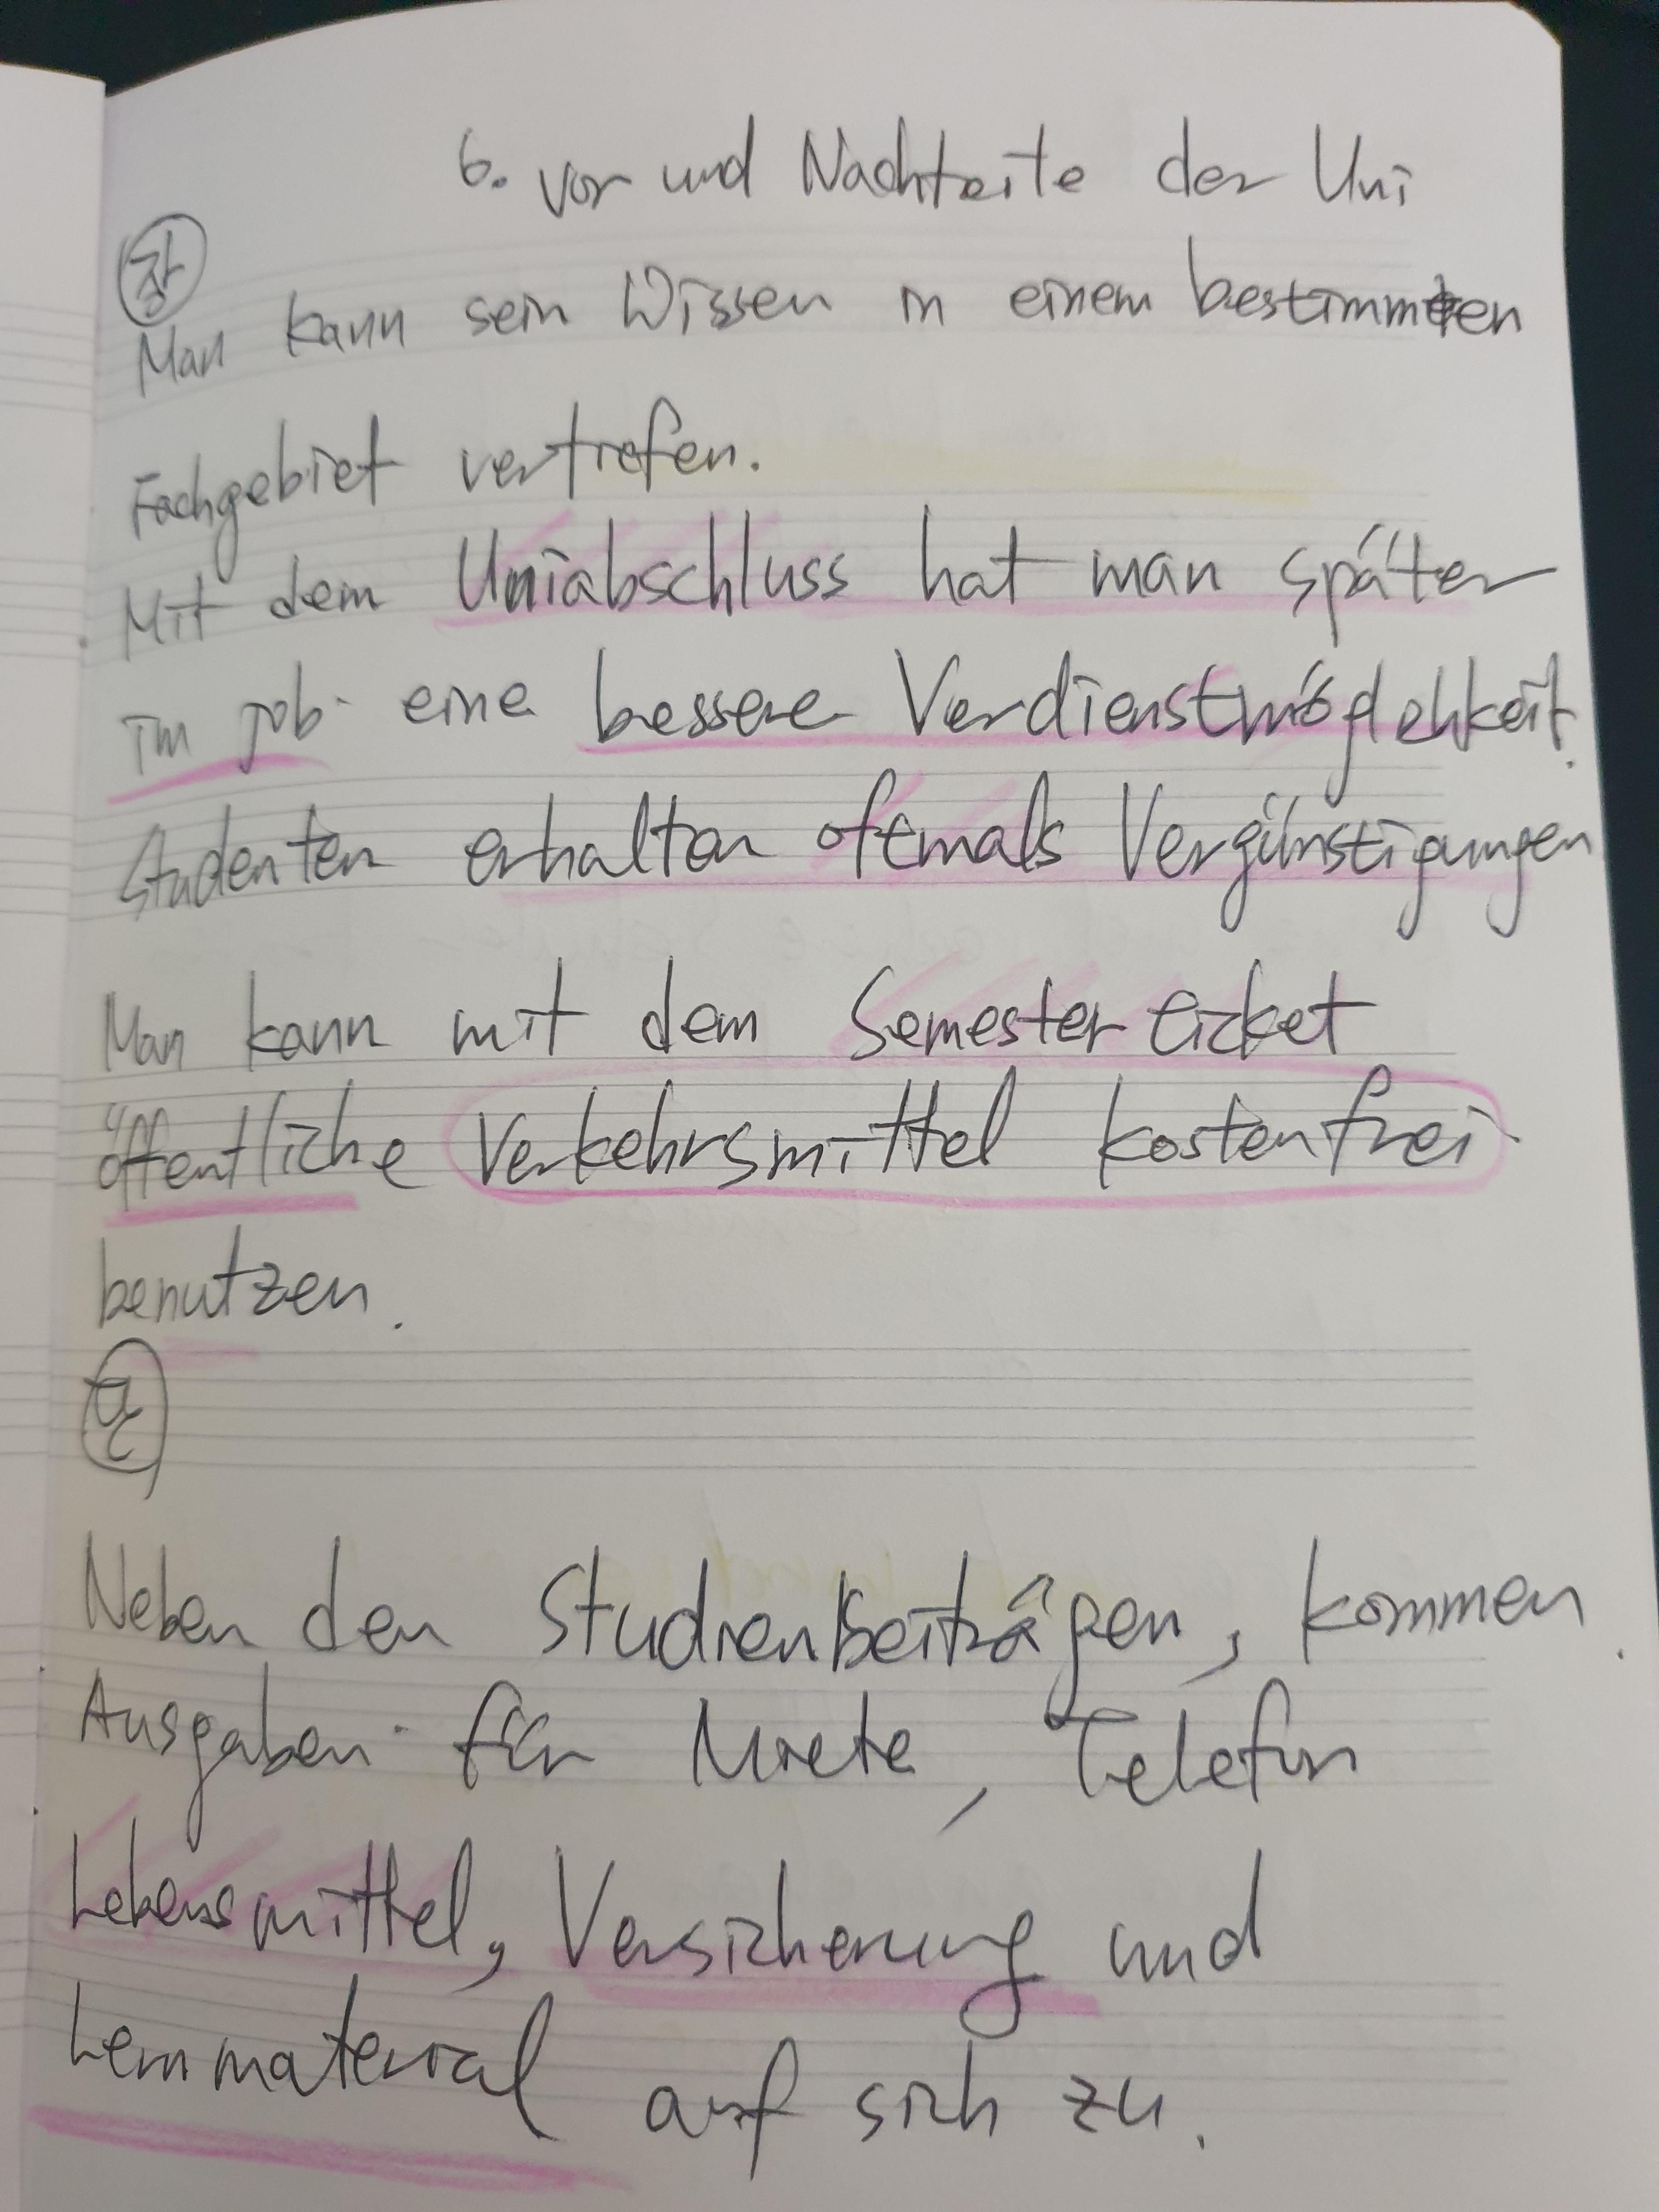 6. vor und Nachteile der Uni
장
Man kann sein Wissen in einem bestimmten
Fachgebiet vertiefen.
Mit dem Uniabschluss hat man später
im job eine bessere Verdienstmöglichkeit.
Studenten erhalten oftmals Vergünstigungen
Man kann mit dem Semesterticket
öffentliche Verkehrsmittel kostenfrei
benutzen.
단
Neben den Studienbeiträgen, kommen
Ausgaben für Miete, Telefon
Lebensmittel, Versicherung und
Lernmaterial auf sich zu.